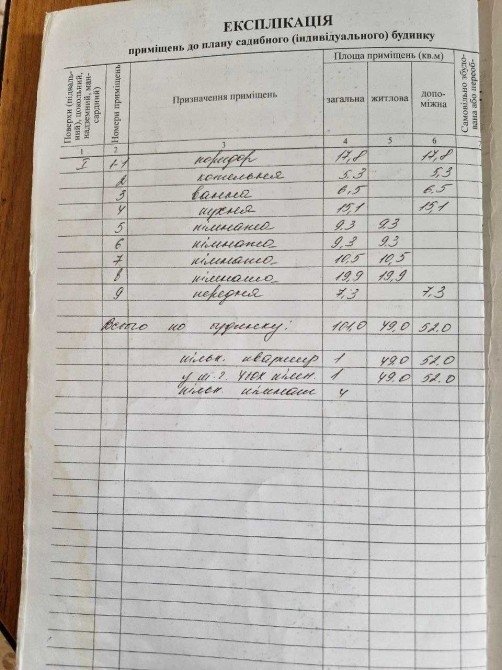 ЕКСПЛІКАЦІЯ
приміщень до плану садибного (індивідуального) будинку
Поверхи (підвальний), цокольний, надземний, мансардний)
Номери приміщень
Призначення приміщень
Площа приміщень (кв.м)
загальна житлова допоміжна
Самовільно збудо-
вана або переоб-
1 2 3 4 5 6
I 1-1 коридор 17,8 17,8
2 котельня 5,3 5,3
3 ванна 6,5 6,5
4 кухня 15,1 15,1
5 кімната 9,3 9,3
6 кімната 9,3 9,3
7 кімната 10,5 10,5
8 кімната 19,9 19,9
9 передня 7,3 7,3
Всього по будинку: 101,0 49,0 52.0
кільк. квартир 1 49.0 52.0
у т.ч. 4юх кімн. 1 49.0 52.0
кільк кімнат 4